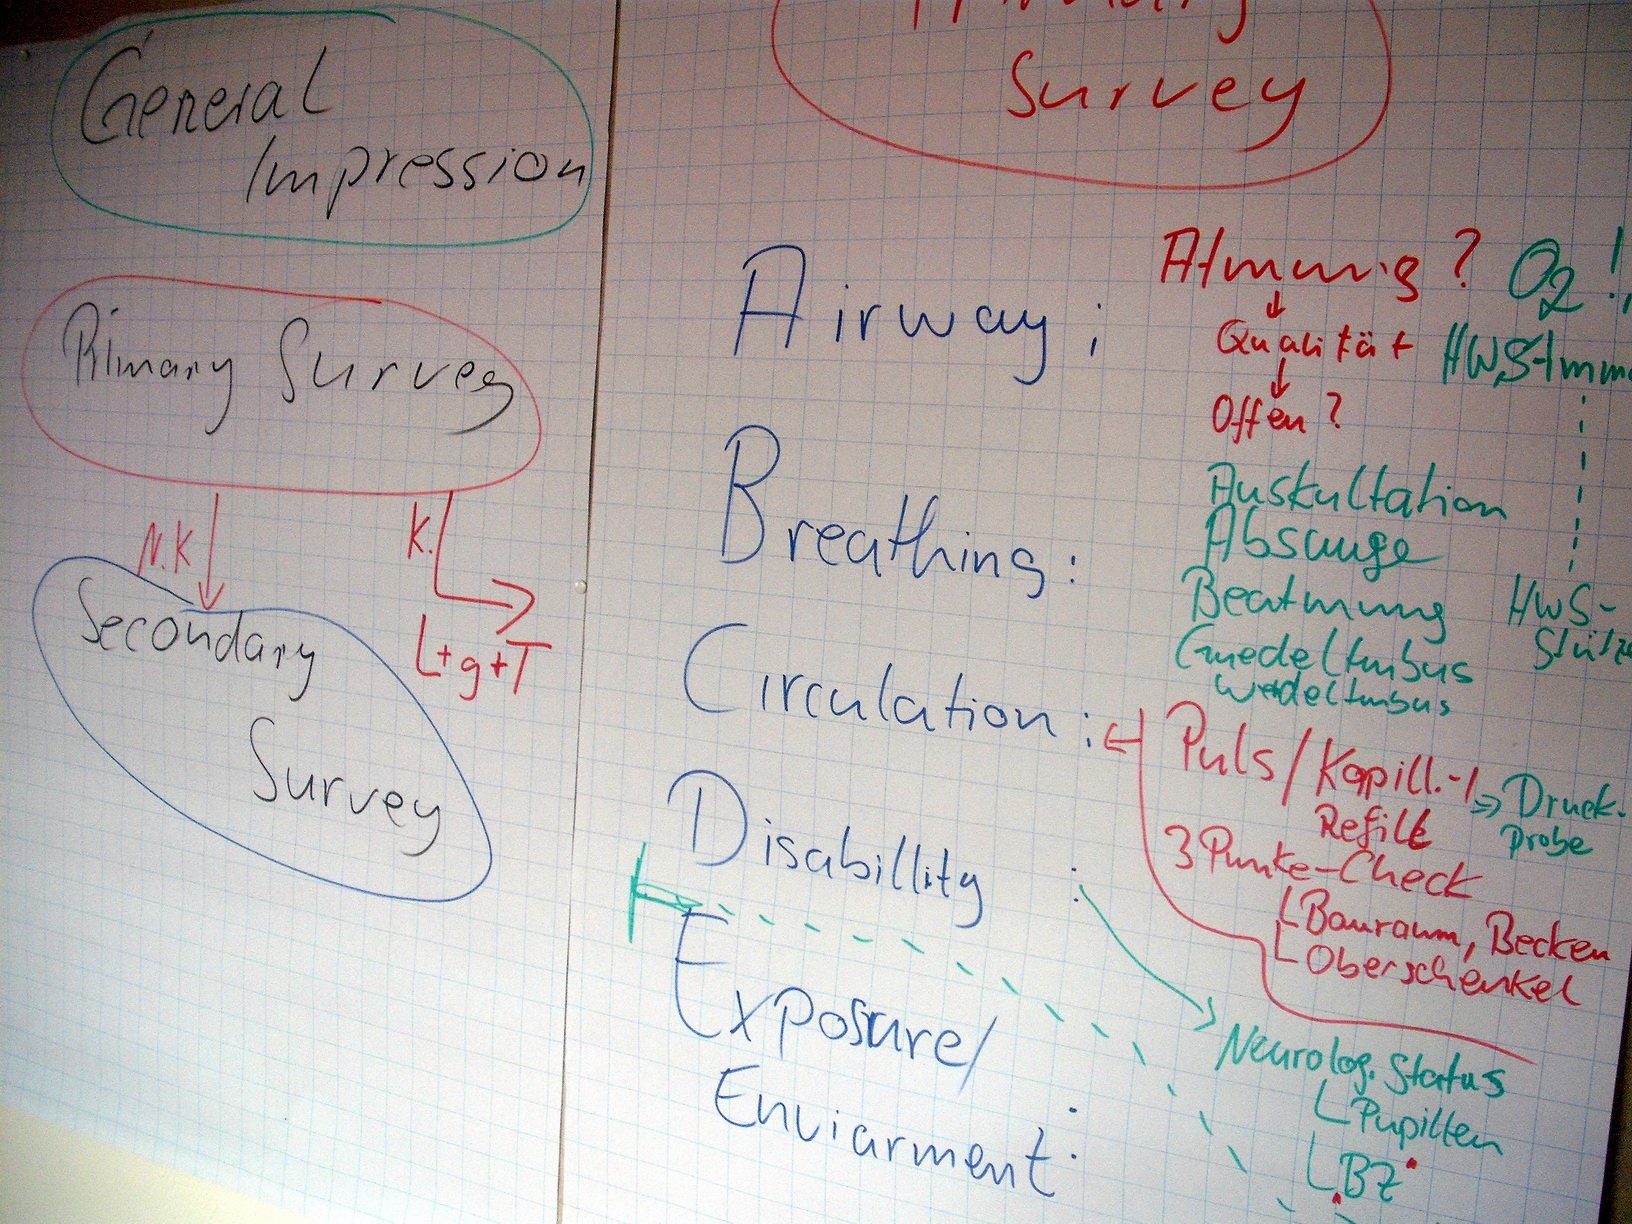 General
Impression
Primary Survey
N.K
K.
L+g+T
Secondary
Survey
Primary
Survey
Airway :
Atmung ? O2 !
Qualität
HWS-Imm
Offen ?
Breathing :
Auskultation
Absauge
Beatmung
Guedeltubus
Wendeltubus
HWS-
Stütze
Circulation :
Puls / Kapill.-
Refill
Druck-
Probe
3 Punke-Check
Bauraum, Becken
Oberschenkel
Disabillity :
Neurolog. Status
Pupillen
BZ
Exposure/
Enviarment :